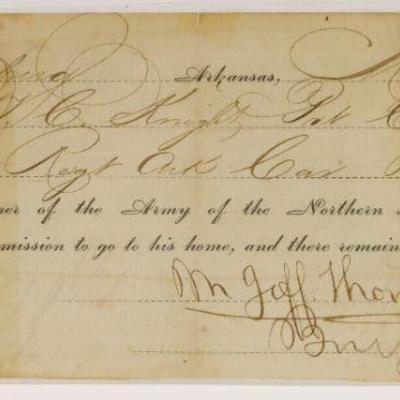 Arkansas,
C. Knight, Pvt C
Regt Ark Cav
ner of the Army of the Northern
mission to go to his home, and there remain
M Jeff. Thom